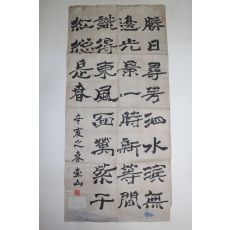 勝日尋芳泗水濱無
邊光景一時新等閒
識得東風面萬紫千
紅總是春
辛亥之春